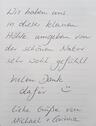 Wir haben uns
in dieser kleinen
Hütte umgeben von
der schönen Natur
sehr wohl gefühlt
Vielen Dank
dafür
Liebe Grüße von
Michael + Corinna